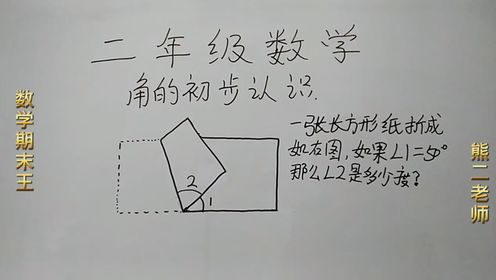 二年级数学
角的初步认识.
一张长方形纸折成
如右图,如果∠1=50°
那么∠2是多少度?
2
1
数学期末王
熊二老师